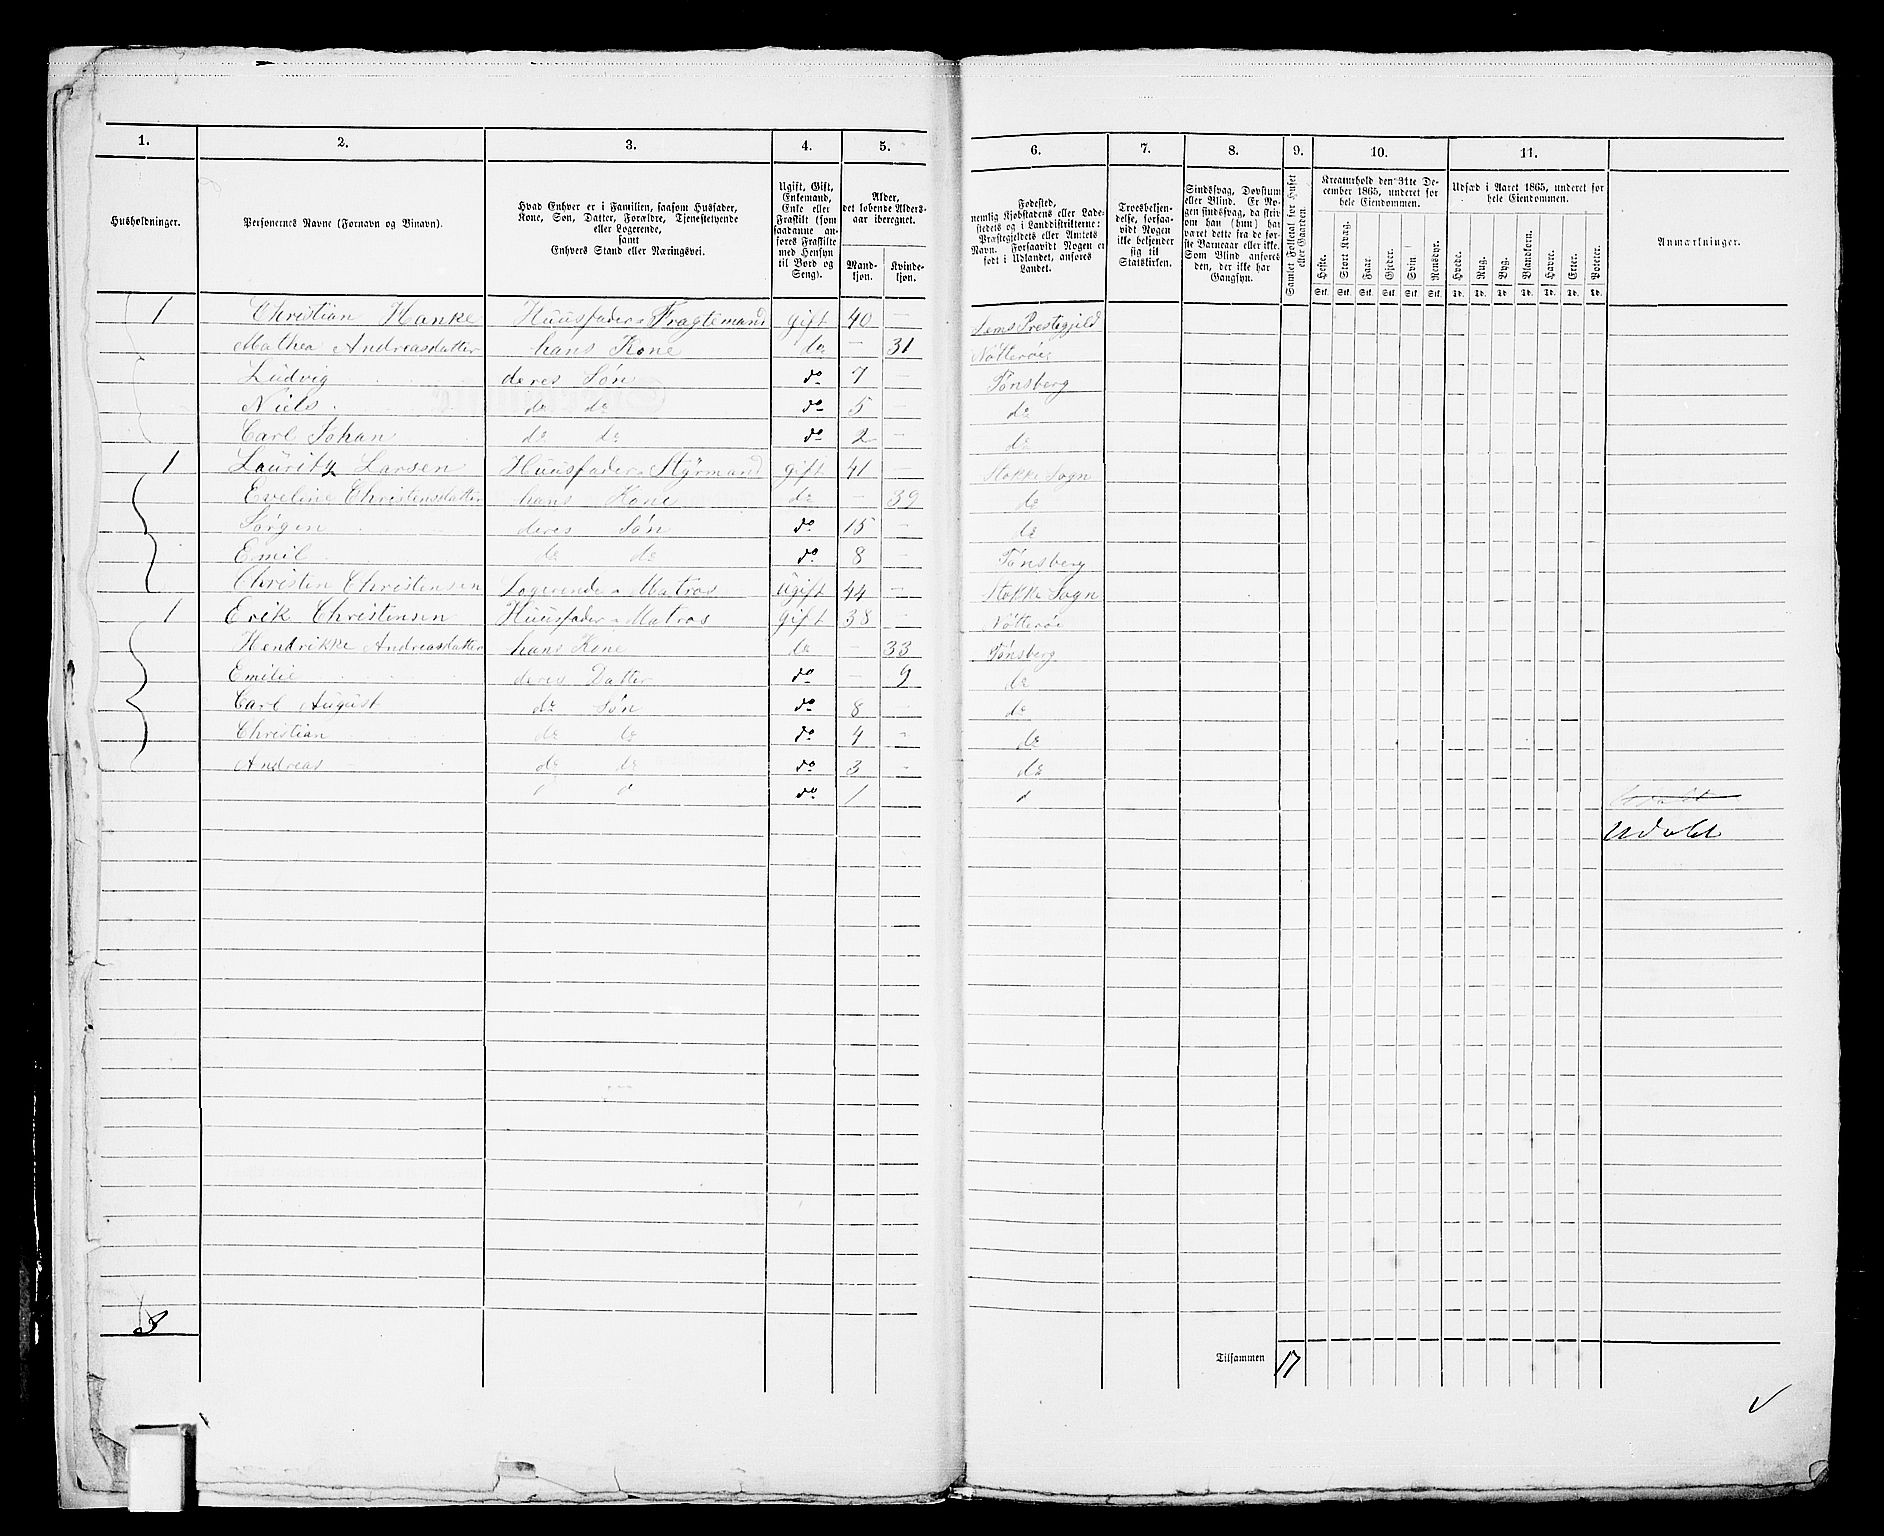 1. 2. 3. 4. 5. 6. 7. 8. 9. 10. 11.
Husholdninger.
Personernes Navne (Fornavn og Binavn).
Hvad Enhver er i Familien, saasom Husfader, Kone, Søn, Datter, Forældre, Tjenestetyende eller Logerende, samt Enhvers Stand eller Næringsvei.
Ugift, Gift, Enkemand, Enke eller Fraskilt (som saadanne anføres Fraskilte med Hensyn til Bord og Seng).
Alder, det løbende Aldersaar iberegnet.
Mandkjøn. Kvindekjøn.
Fødested, nemlig Kjøbstadens eller Ladestedets og i Landdistrikterne: Præstegjeldets eller Amtets Navn. Forsaavidt Nogen er født i Udlandet, anføres Landet.
Troesbekjendelse, forsaavidt Nogen ikke bekjender sig til Statskirken.
Sindssvag, Døvstum eller Blind. Er Nogen sindssvag, da skriv om han (hun) har været dette fra de første Barneaar eller ikke. Som Blind anføres den, der ikke har Gangsyn.
Samlet Folketal for Huset eller Gaarden.
Kreaturhold den 31te December 1865, underet for hele Eiendommen.
Heste. Stort Kvæg. Faar. Gjeder. Svin Rensdyr.
Udsæd i Aaret 1865, underet for hele Eiendommen.
Hvede. Rug. Byg. Blandkorn. Havre. Erter. Poteter.
Anmærkninger.
Stk. Stk. Stk. Stk. Stk. Stk. Td. Td. Td. Td. Td. Td. Td.
1 Christian Hanke Huusfader Fragtemand gift 40 – Sems Prestegjeld
Mathea Andreasdatter hans Kone do – 31 Nötteröe
Ludvig deres Søn do 7 – Tønsberg
Niels do do do 5 – do
Carl Johan do do do 2 – do
1 Lauritz Larsen Huusfader Styrmand gift 41 – Stokke Sogn
Eveline Christensdatter hans Kone do – 39 do
Jørgen deres Søn do 15 – do
Emil do do do 8 – Tønsberg
Christin Christensen Logerende Matros Ugift 44 – Stokke Sogn
1 Erik Christensen Huusfader Matros gift 38 – Nötteröe
Hendrikke Andreasdatter hans Kone do – 33 Tønsberg
Emilie deres Datter do – 9 do
Carl August do Søn do 8 – do
Christian do do do 4 – do
Andreas do do do 3 – do
do 1
Udøbt
3
Tilsammen 17